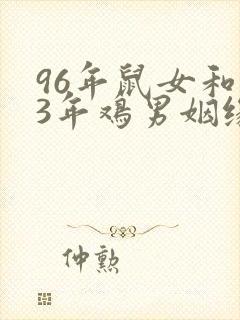 96年鼠女和
3年鸡男姻缘
仲勲